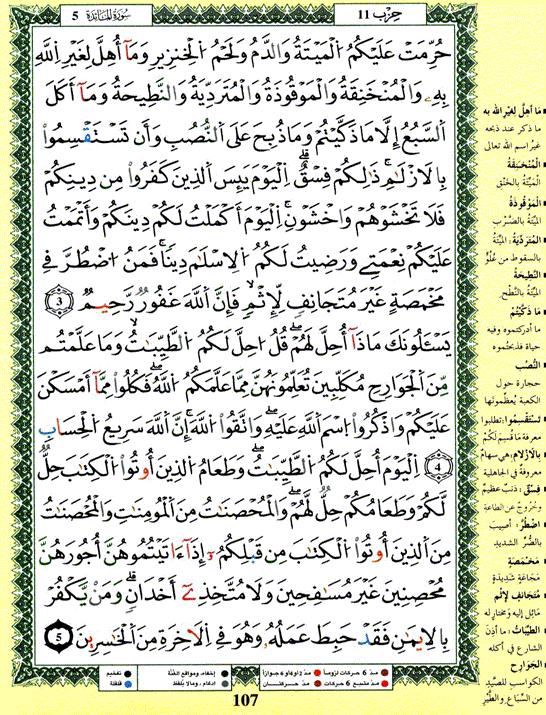 سُورَةُ المَائِدَة 5
حِزْب 11
حُرِّمَتْ عَلَيْكُمُ الْمَيْتَةُ وَالدَّمُ وَلَحْمُ الْخِنزِيرِ وَمَا أُهِلَّ لِغَيْرِ اللَّهِ
بِهِ وَالْمُنْخَنِقَةُ وَالْمَوْقُوذَةُ وَالْمُتَرَدِّيَةُ وَالنَّطِيحَةُ وَمَا أَكَلَ
السَّبُعُ إِلَّا مَا ذَكَّيْتُمْ وَمَا ذُبِحَ عَلَى النُّصُبِ وَأَن تَسْتَقْسِمُوا
بِالْأَزْلَٰمِ ذَٰلِكُمْ فِسْقٌ الْيَوْمَ يَئِسَ الَّذِينَ كَفَرُوا مِن دِينِكُمْ
فَلَا تَخْشَوْهُمْ وَاخْشَوْنِ الْيَوْمَ أَكْمَلْتُ لَكُمْ دِينَكُمْ وَأَتْمَمْتُ
عَلَيْكُمْ نِعْمَتِي وَرَضِيتُ لَكُمُ الْإِسْلَٰمَ دِينًا فَمَنُ اضْطُرَّ فِي
مَخْمَصَةٍ غَيْرَ مُتَجَانِفٍ لِإِثْمٍ فَإِنَّ اللَّهَ غَفُورٌ رَّحِيمٌ 3
يَسْـَٔلُونَكَ مَاذَا أُحِلَّ لَهُمْ قُلُ احِلَّ لَكُمُ الطَّيِّبَٰتُ وَمَا عَلَّمْتُم
مِّنَ الْجَوَارِحِ مُكَلِّبِينَ تُعَلِّمُونَهُنَّ مِمَّا عَلَّمَكُمُ اللَّهُ فَكُلُوا مِمَّا أَمْسَكْنَ
عَلَيْكُمْ وَاذْكُرُوا اسْمَ اللَّهِ عَلَيْهِ وَاتَّقُوا اللَّهَ إِنَّ اللَّهَ سَرِيعُ الْحِسَابِ
4 الْيَوْمَ أُحِلَّ لَكُمُ الطَّيِّبَٰتُ وَطَعَامُ الَّذِينَ أُوتُوا الْكِتَٰبَ حِلٌّ
لَّكُمْ وَطَعَامُكُمْ حِلٌّ لَّهُمْ وَالْمُحْصَنَٰتُ مِنَ الْمُومِنَٰتِ وَالْمُحْصَنَٰتُ
مِنَ الَّذِينَ أُوتُوا الْكِتَٰبَ مِن قَبْلِكُمُ إِذَا ءَاتَيْتُمُوهُنَّ أُجُورَهُنَّ
مُحْصِنِينَ غَيْرَ مُسَٰفِحِينَ وَلَا مُتَّخِذِي أَخْدَانٍ وَمَنْ يَّكْفُرْ
بِالْإِيمَٰنِ فَقَدْ حَبِطَ عَمَلُهُ وَهُوَ فِي الْآخِرَةِ مِنَ الْخَٰسِرِينَ 5
مَا أُهِلَّ لِغَيْرِ الله به
ما ذكر عند ذبحه
غير اسم الله تعالى
الْمُنْخَنِقَةُ
الميّتة بالخنق
الْمَوْقُوذَةُ
الميّتة بالضرب
الْمُتَرَدِّيَةُ: الميّتة
بالسقوط من علوّ
النَّطِيحَةُ
الميّتة بالنطح
مَا ذَكَّيْتُمْ
ما أدركتموه وفيه
حياة فذبحتموه
النُّصُب
حجارة حول
الكعبة يعظمونها
تَسْتَقْسِمُوا: تطلبوا
معرفة ما قسم لكم
بِالْأَزْلَامِ: هي سهام
معروفة في الجاهلية
فِسْقٌ: ذنب عظيم
وخروج عن الطاعة
اضْطُرَّ: أصيب
بالضر الشديد
مَخْمَصَةٍ
مجاعة شديدة
مُتَجَانِفٍ لِإِثْمٍ
مائل إليه ومختار له
الطَّيِّبَاتُ: ما أذن
الشارع في أكله
الْجَوَارِحِ
الكواسب للصيد
من السباع والطير
مدّ 6 حركات لزوماً
مدّ 2 أو 4 أو 6 جوازاً
إخفاء، ومواقع الغنّة
تفخيم
مدّ مشبع 6 حركات
مدّ حركتان
إدغام، وما لا يُلفظ
قلقلة
107